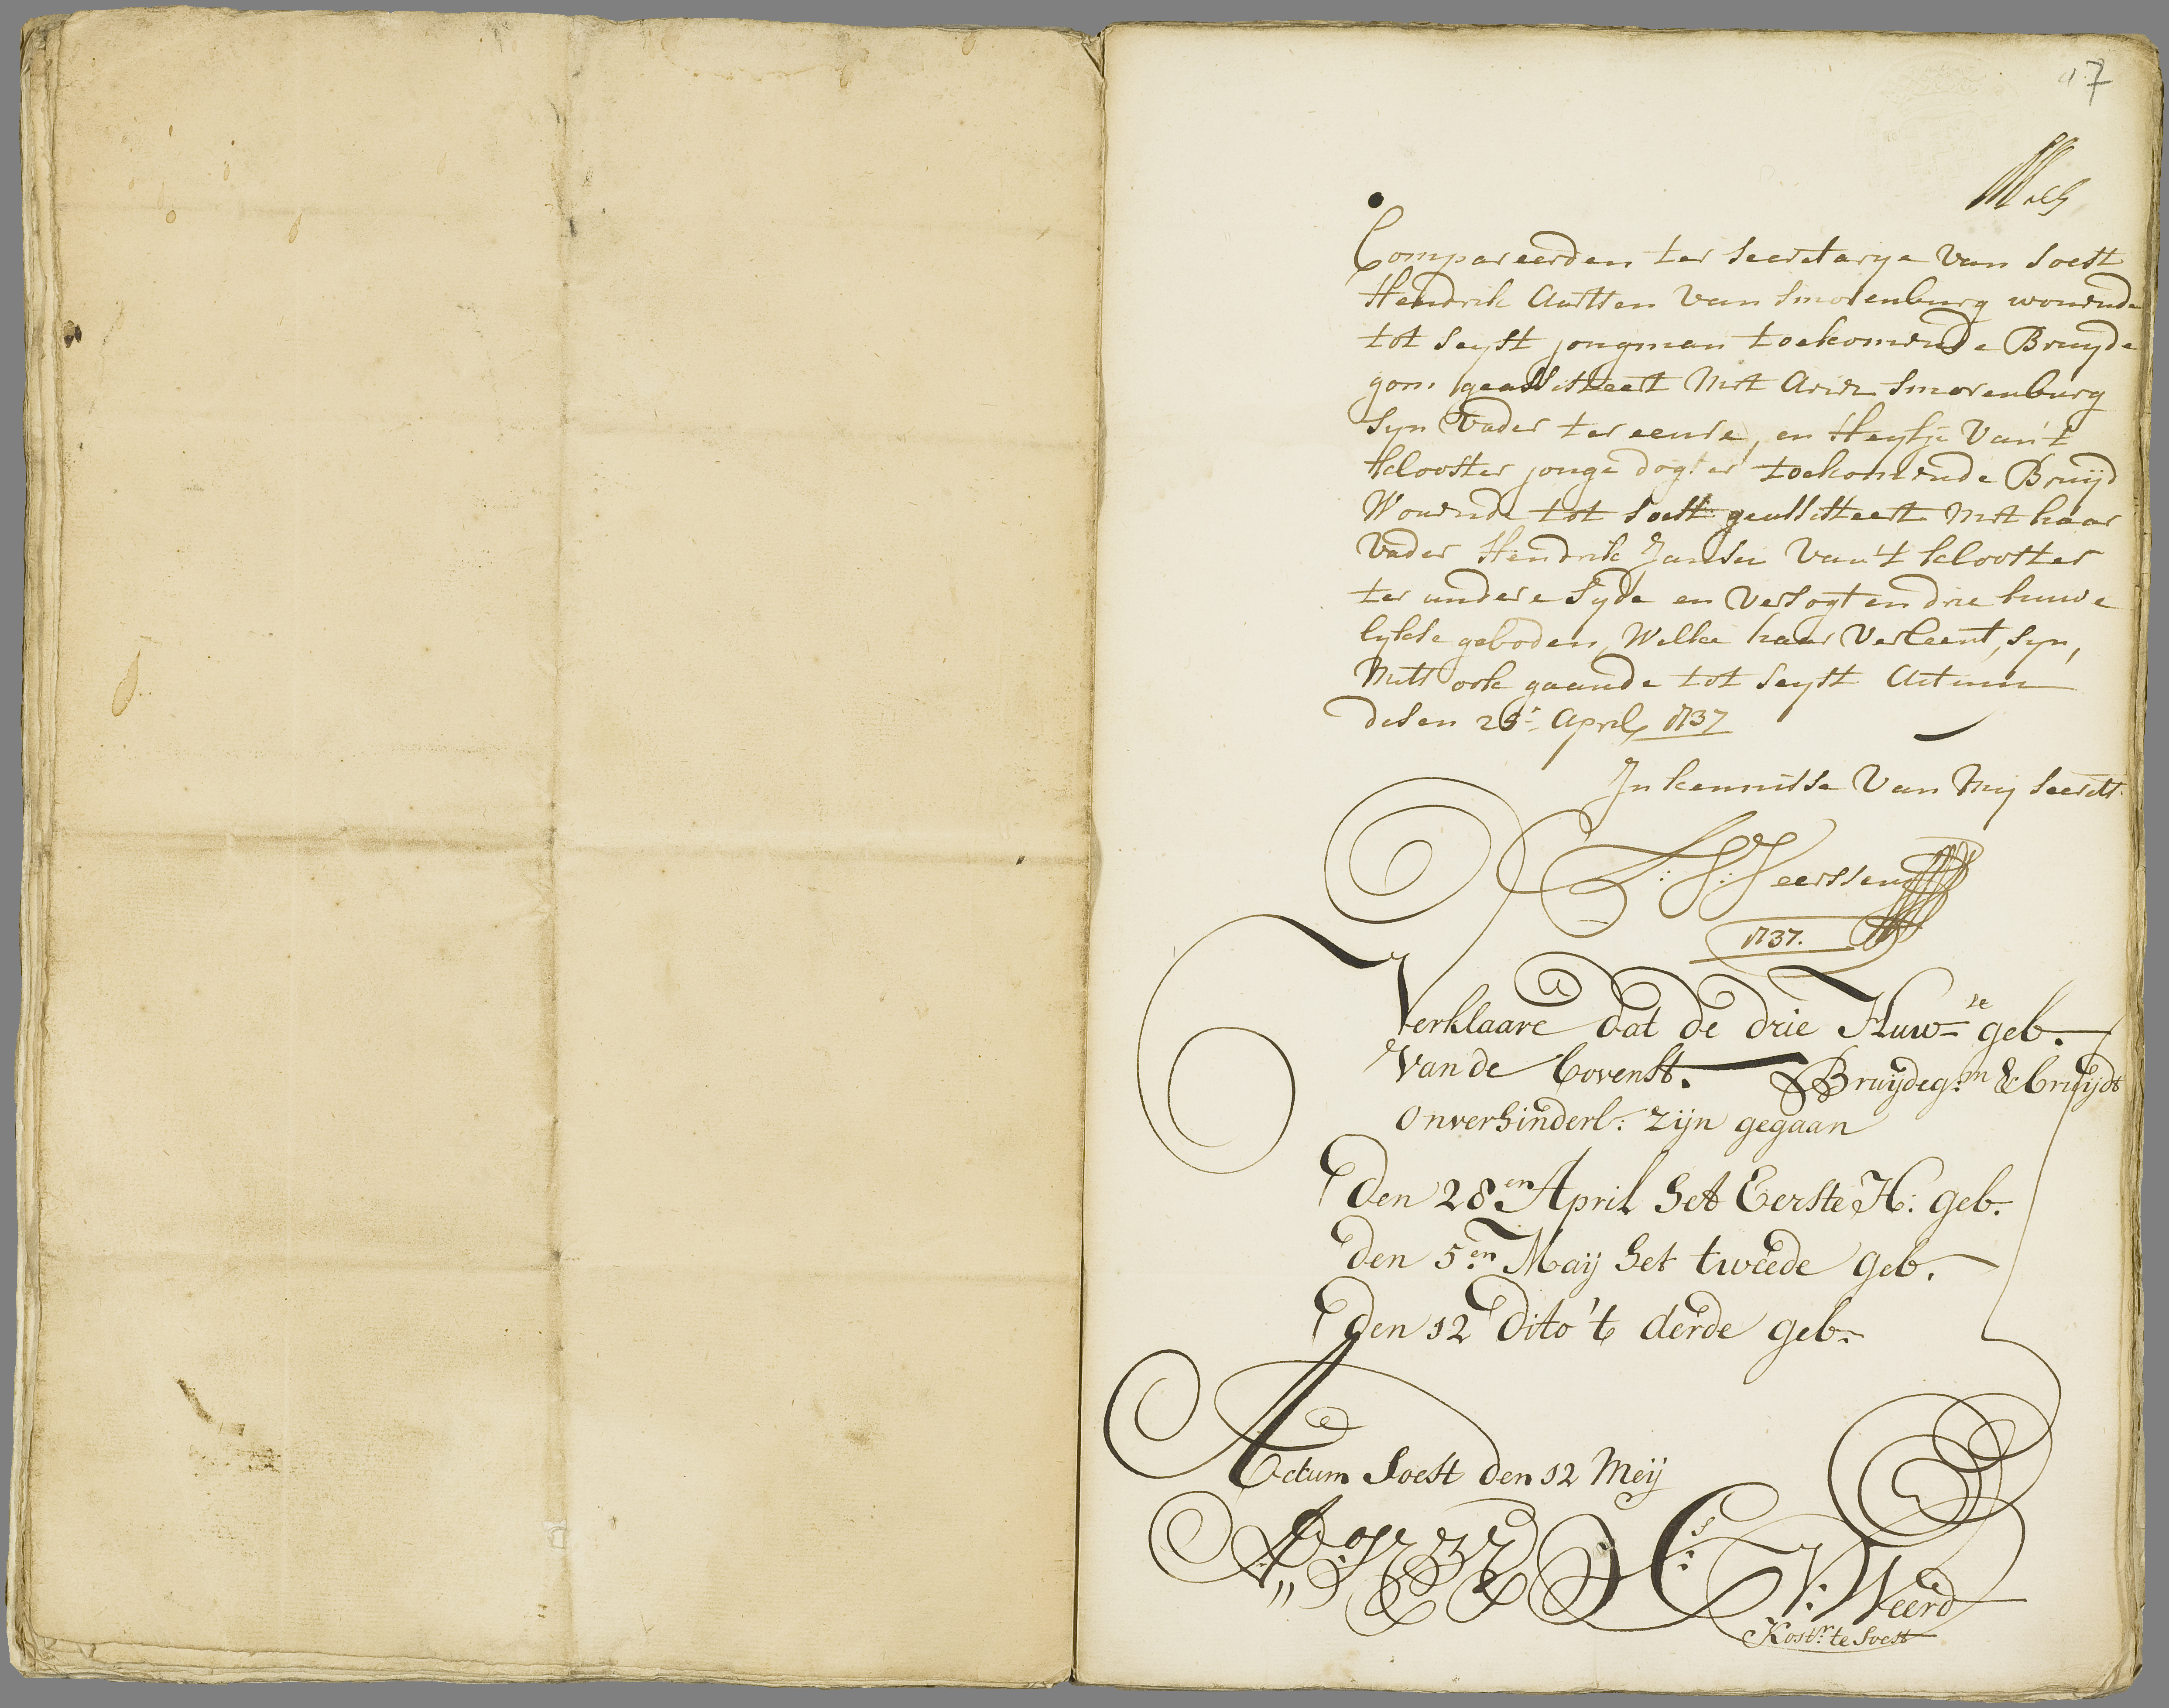 17
Compareerden ter secretarye van soest
Hendrik Aartsen van smorenburg wonende
tot seyst jongman toekomende Bruyde
gom geassisteert met Aris smorenburg
syn vader ter eenre, en Heyltje van't
klooster jonge dogter toekomende Bruijd
Wonende tot soest geassisteert met haar
vader Hendrik Jansen van't klooster
ter andere syde en versogten drie huwe
lykse geboden, Welke haar verleent, syn,
mits ook gaande tot seyst Actum
desen 26e April 1737
In kennisse van my secrets.
1737.
Verklaare dat de drie Huw=se geb.
van de bovenst. Bruijdeg:m & bruijdt
onverhinderl: zijn gegaan
Den 28en April het Eerste H: geb.
den 5en Maij het tweede geb.
den 12 Dito 't derde geb.
Actum Soest den 12 Meij
Ao 1737 C: V: Weerd
Kostr. te Soest